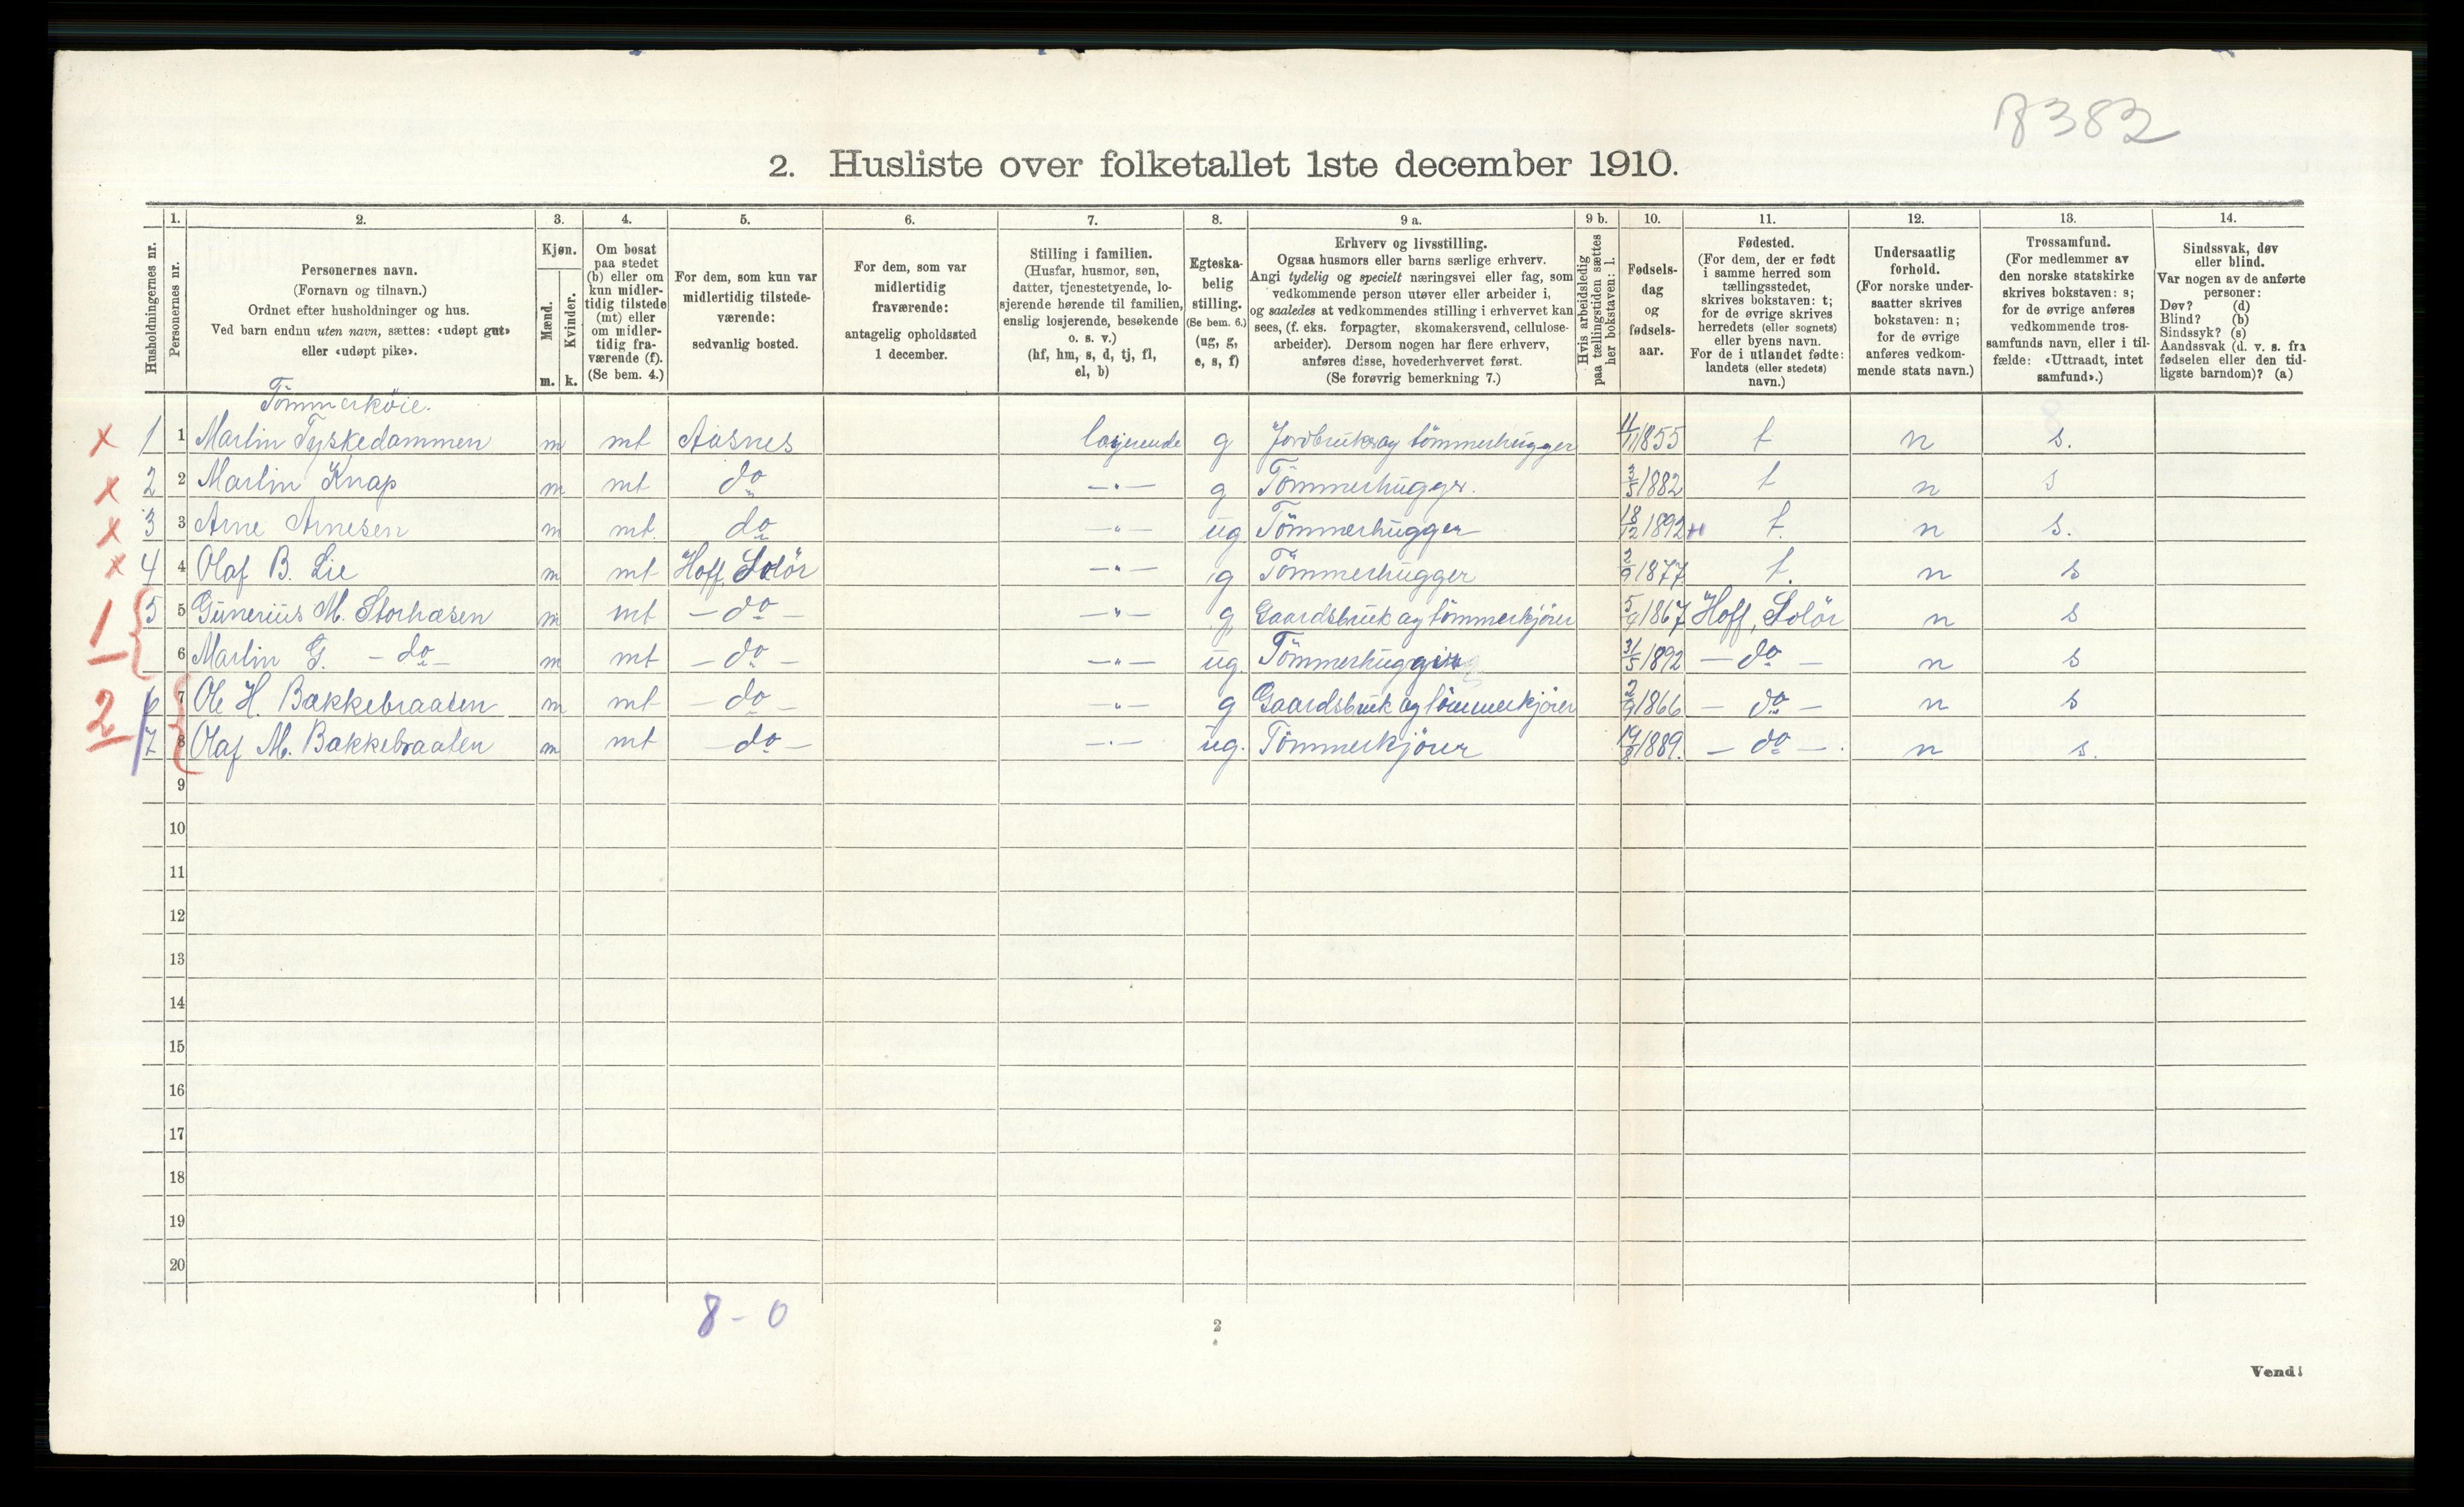 8382
2. Husliste over folketallet 1ste december 1910.
Husholdningernes nr.
1.
Personernes nr.
2.
Personernes navn.
(Fornavn og tilnavn.)
Ordnet efter husholdninger og hus.
Ved barn endnu uten navn, sættes: «udøpt gut»
eller «udøpt pike».
3.
Kjøn.
Mænd.
Kvinder.
m. k.
4.
Om bosat
paa stedet
(b) eller om
kun midler-
tidig tilstede
(mt) eller
om midler-
tidig fra-
værende (f).
(Se bem. 4.)
5.
For dem, som kun var
midlertidig tilstede-
værende:
sedvanlig bosted.
6.
For dem, som var
midlertidig
fraværende:
antagelig opholdssted
1 december.
7.
Stilling i familien.
(Husfar, husmor, søn,
datter, tjenestetyende, lo-
sjerende hørende til familien,
enslig losjerende, besøkende
o. s. v.)
(hf, hm, s, d, tj, fl,
el, b)
8.
Egteska-
belig
stilling.
(Se bem. 6.)
(ug, g,
e, s, f)
9 a.
Erhverv og livsstilling.
Ogsaa husmors eller barns særlige erhverv.
Angi tydelig og specielt næringsvei eller fag, som
vedkommende person utøver eller arbeider i,
og saaledes at vedkommendes stilling i erhvervet kan
sees, (f. eks. forpagter, skomakersvend, cellulose-
arbeider). Dersom nogen har flere erhverv,
anføres disse, hovederhvervet først.
(Se forøvrig bemerkning 7.)
9 b.
Hvis arbeidsledig
paa tællingstiden sættes
her bokstaven: l.
10.
Fødsels-
dag
og
fødsels-
aar.
11.
Fødested.
(For dem, der er født
i samme herred som
tællingsstedet,
skrives bokstaven: t;
for de øvrige skrives
herredets (eller sognets)
eller byens navn.
For de i utlandet fødte:
landets (eller stedets)
navn.)
12.
Undersaatlig
forhold.
(For norske under-
saatter skrives
bokstaven: n;
for de øvrige
anføres vedkom-
mende stats navn.)
13.
Trossamfund.
(For medlemmer av
den norske statskirke
skrives bokstaven: s;
for de øvrige anføres
vedkommende tros-
samfunds navn, eller i til-
fælde: «Uttraadt, intet
samfund».)
14.
Sindssvak, døv
eller blind.
Var nogen av de anførte
personer:
Døv? (d)
Blind? (b)
Sindssyk? (s)
Aandssvak (d. v. s. fra
fødselen eller den tid-
ligste barndom)? (a)
Tömmerköie.
x 1 1 Martin Tyskedammen m mt Aasnes losjerende g Jordbruks og tömmerhugger 11/11 1855 t n s.
x 2 2 Martin Knap m mt do — " — g Tömmerhugger. 3/5 1882 t n s
x 3 3 Arne Arnesen m mt. do — " — ug Tömmerhugger 18/12 1892 t. n s.
x 4 4 Olaf B. Lie m mt Hoff Solör — " — g Tömmerhugger 2/9 1877 t. n s
1 5 5 Gunerius M. Storhasen m mt — do — — " — g Gaardsbruk og tömmerkjörer 5/4 1867 Hoff, Solör n s
6 Martin G. — do — m mt — do — — " — ug. Tömmerhugger 31/5 1892 — do — n s
2 6 7 Ole H. Bakkebraaten m mt — do — — " — g Gaardsbruk og tömmerkjörer 2/9 1866 — do — n s
7 8 Olaf M. Bakkebraaten m mt — do — — " — ug. Tömmerkjörer 19/8 1889. — do — . n s.
9
10
11
12
13
14
15
16
17
18
19
20
8 - 0
2
Vend!